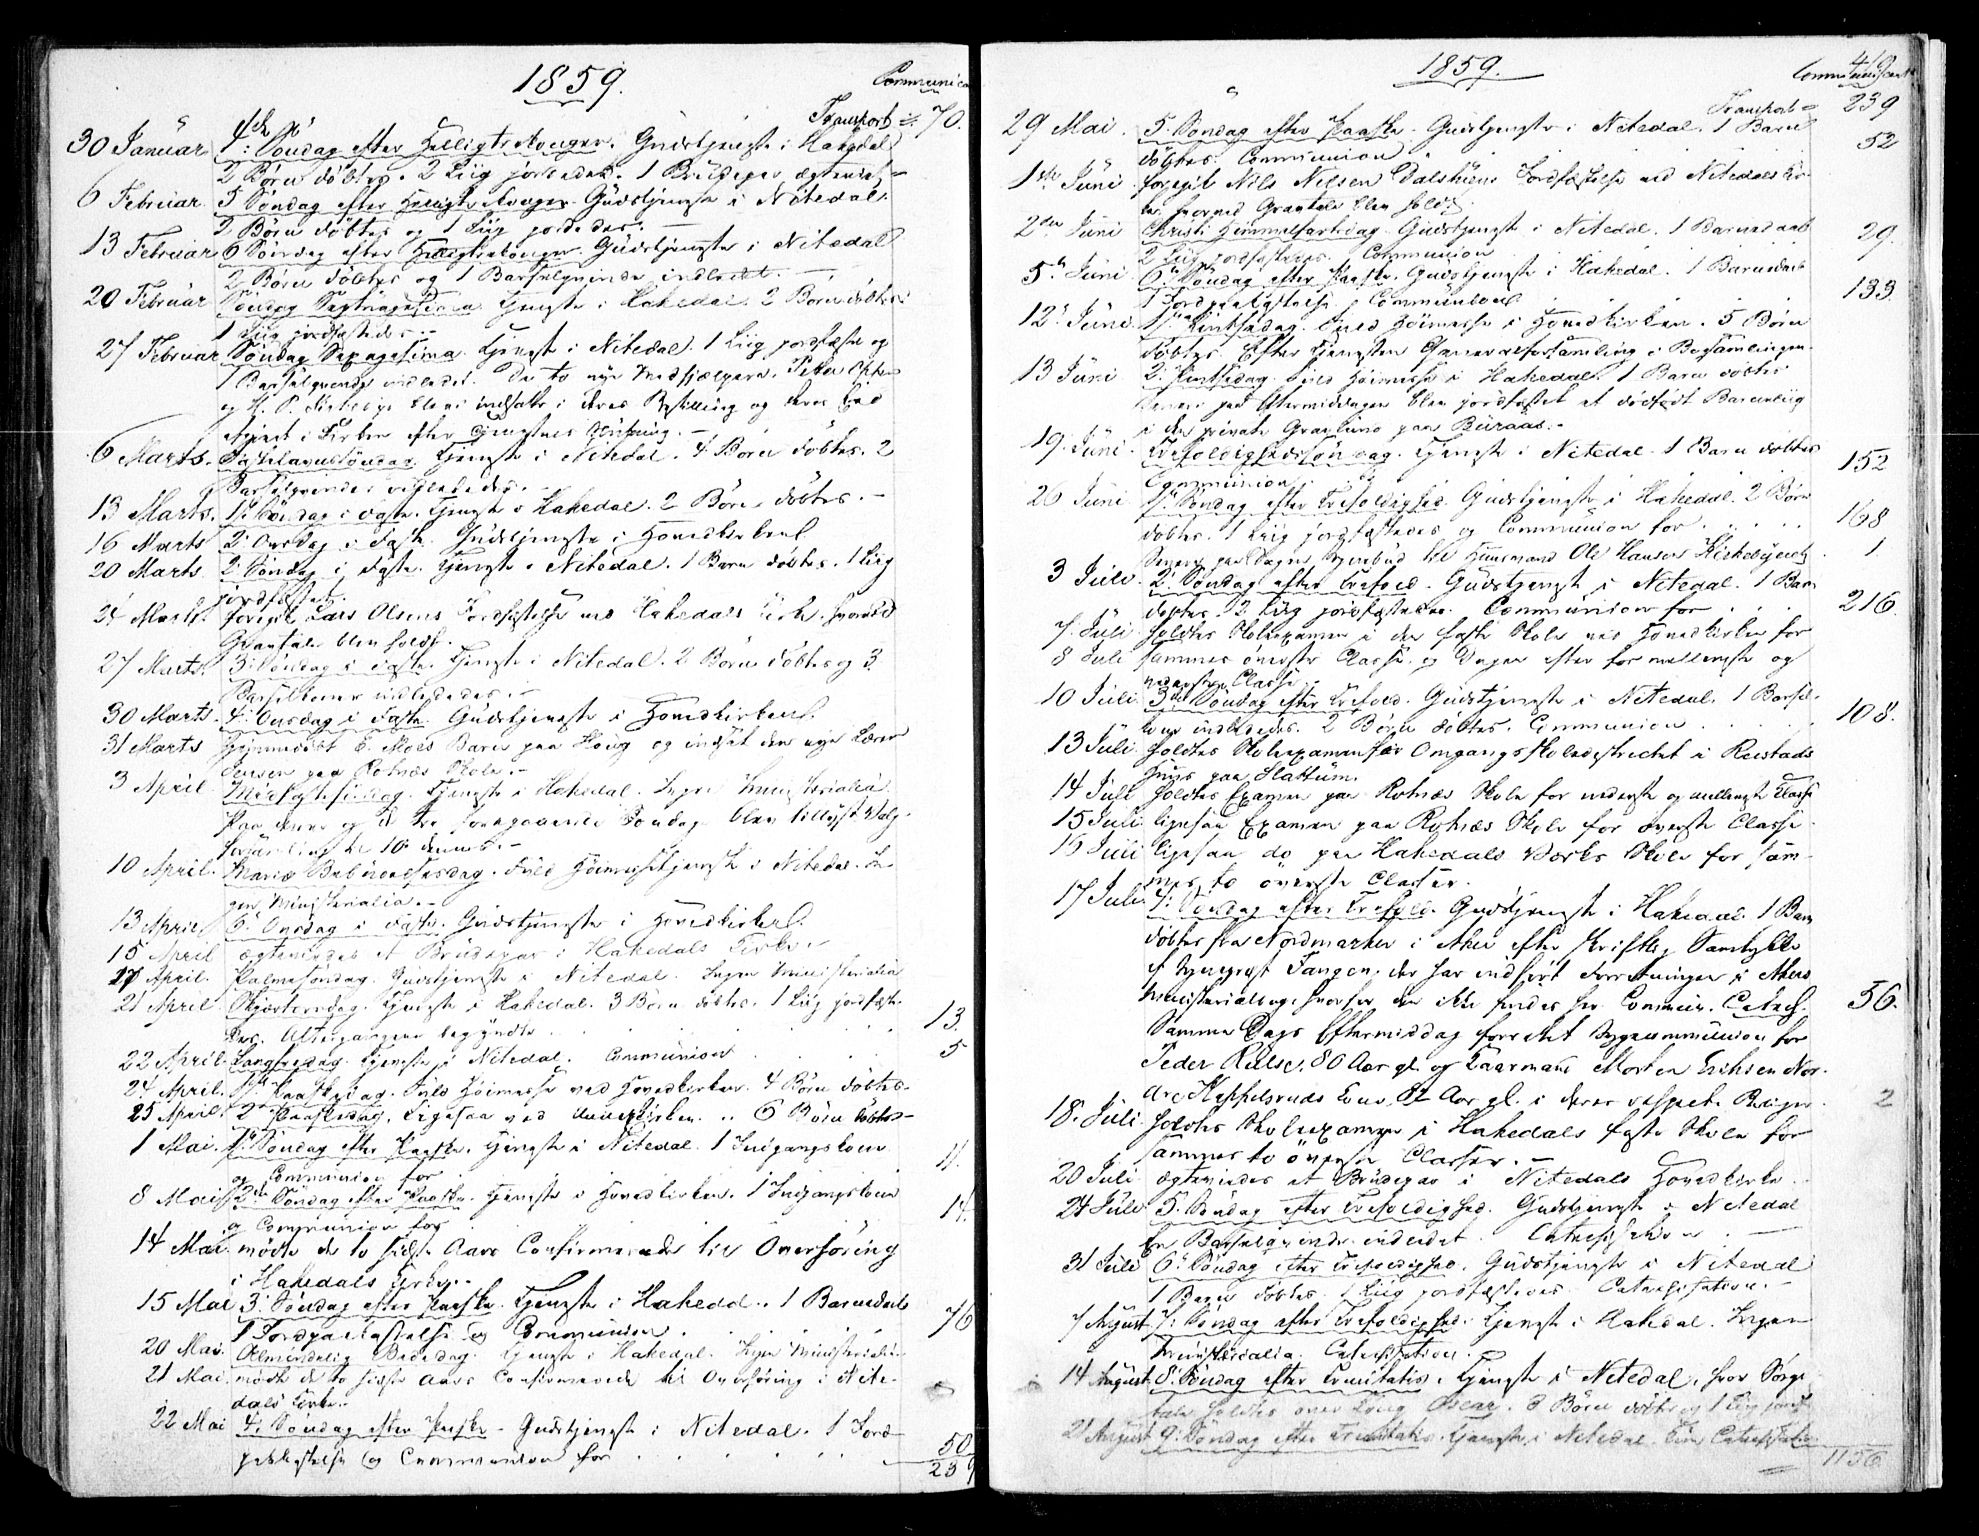 1859.
Communica
Transport = 70.
30 Januar 4de Søndag efter Helligtrekonger. Gudstjeneste i Hakedal
2 Børn döbtes. 2 Liig jordedes. 1 Brudepar ægteviet
6 Februar 5 Søndag efter Helligtrekonger Gudstjeneste i Nitedal.
2 Børn döbtes og 1 Liig jordedes.
13 Februar 6 Søndag efter Helligtrekonger. Gudstjeneste i Nitedal
2 Børn döbtes og 1 Barselqvinde indledet.
20 Februar Søndag Septuagesima Tjeneste i Hakedal 2 Børn döbtes.
1 Liig jordfæstedes.
27 Februar Søndag Sexagesima Tjeneste i Nitedal. 1 Liig jordfæstet og
1 Barselqvinde indledet. De to nye Medhjælpere, Peter
og H. P. bleve indsatte i deres Bestilling og deres Eed
i Kirken efter Tjenestens
6 Marts. Fastelavnssöndag Tjeneste i Nitedal. 4 Børn döbtes. 2
Barselqvinder indlededes.
13 Marts. 1. Søndag i Faste. Tjeneste i Hakedal. 2 Børn döbtes.
16 Marts 2. Onsdag i Faste. Gudstjeneste i Hovedkirken
20 Marts 2. Søndag i Faste. Tjeneste i Nitedal. 1 Barn döbtes. 1 Liig
jordfæstet.
Marts. foregik Lars Olsens Jordfæstelse ved Hakedals Kirke, hvorved
Gravtale blev holdt.
27 Marts. 3. Søndag i Faste. Tjeneste i Nitedal. 2 Børn döbtes og 3
Barselkoner indlededes.
30 Marts. 4. Onsdag i Faste. Gudstjeneste i Hovedkirken.
31 Marts Hjemmedöbt E. Moes Barn paa Houg og indsat den nye Lærer
Jensen paa Rotnæs Skole.
3 April Midfastesöndag. Tjeneste i Hakedal. Ingen Ministerialia.
Paa denne og de tre foregaaende Søndage blev tillyst Valg-
forsamling til 10 dennes.
10 April. Mariæ Bebudelsesdag. Fuld Høimessetjeneste i Nitedal. In-
gen Ministerialia.
13 April 6. Onsdag i Faste. Gudstjeneste i Hovedkirken.
15 April ægteviedes et Brudepar i Hakedals Kirke.
17 April. Palmesöndag. Gudstjeneste i Nitedal. Ingen Ministerialia
21 April Skjærtorsdag. Tjeneste i Hakedal. 3 Børn döbtes. 1 Liig jordfæste-
des. Altergangen begyndte . . . 13.
22 April. Langfredag. Tjeneste i Nitedal. Communion . . . 5
24 April. 1ste Paaskedag. Fuld Høimesse ved Hovedkirken. 4 Børn döbtes.
25 April. 2. Paaskedag. Ligesaa ved Annexkirken. 6 Børn döbtes.
1 Mai. 1. Søndag efter Paaske. Tjeneste i Nitedal. 1 Indgangskone
og Communion for 11.
8 Mai 2den Søndag efter Paaske. Tjeneste i Hovedkirken. 1 Indgangskone
og Communion for 14.
14 Mai. mödte de to sidste Aars Confirmerede til Overhöring
i Hakedals Kirke.
15 Mai 3. Søndag efter Paaske. Tjeneste i Hakedal. 1 Barnedaab
1 Jordpaakastelse og Communion . . 76
20 Mai. Almindelig Bededag. Tjeneste i Hakedal. Ingen Ministerialia.
21 Mai mödte de to sidste Aars Confirmerede til Overhöring i Nite-
dals Kirke.
22 Mai 4. Søndag efter Paaske. Gudstjeneste i Nitedal. 1 Jord-
paakastelse og Communion for . . . 50
239
1859.
419
Communicant
Transport = 239
29 Mai. 5. Søndag efter Paaske. Gudstjeneste i Nitedal. 1 Barn
döbtes. Communion . 52
1ste Juni foregik Nils Nilsen Dalstuens Jordfæstelse ved Nitedals Kir-
ke, hvorved Gravtale blev holdt.
2den Juni Christi Himmelfartsdag. Gudstjeneste i Nitedal. 1 Barnedaab
2 Liig jordfæstedes. Communion 29.
5. Juni 6. Søndag efter Paaske. Gudstjeneste i Hakedal. 1 Barnedaab
1 Jordpaakastelse. Communion 133.
12. Juni. 1. Pintsedag. Fuld Høimesse i Hovedkirken. 5 Børn
döbtes. Efter Tjenesten Generalforsamling i Bogsamlingen.
13 Juni 2. Pintsedag. Fuld Høimesse i Hakedal. 1 Barn döbtes
Senere paa Eftermiddagen blev jordfæstet et dödfödt Barneliig
i den private Gravlund paa Buraas.
19. Juni. Trefoldighedssöndag. Tjeneste i Nitedal. 1 Barn döbtes
Communion 152
26 Juni 1. Søndag efter Trefoldighed. Gudstjeneste i Hakedal. 2 Børn
döbtes. 1 Liig jordfæstedes og Communion for . . . 168
Senere paa Dagen Sygebud til Huusmand Ole Hansen Kirkebyeie . 1.
3 Juli. 2. Søndag efter Trefold. Gudstjeneste i Nitedal. 1 Barn
döbtes. 2 Liig jordfæstedes. Communion for . . . 216.
7. Juli holdtes Skoleexamen i den faste Skole ved Hovedkirken for
8 Juli sammes överste Classe og Dagen efter for mellemste og
nederste Classe.
10 Juli 3die Søndag efter Trefold. Gudstjeneste i Nitedal. 1 Barsel-
kone indlededes. 2 Børn döbtes. Communion . . . 108.
13 Juli holdtes Skoleexamen for Omgangsskoledistrictet i Rustads
Huus paa Slattum.
14 Juli holdtes Examen paa Rotnæs Skole for nederste og mellemste Classe
15 Juli ligesaa Examen paa Rotnæs Skole for överste Classe
16 Juli ligesaa do paa Hakedals Værks Skole for sam-
mes to överste Classer.
17 Juli 4. Søndag efter Trefold. Gudstjeneste i Hakedal. 1 Barn
döbtes fra Nordmarken i Aker efter skriftlig Samtykke
af Sognepræst Tangen, der har indfört Forretningen i Akers
Ministerialbog, hvorfor den ikke findes her. Commun. Catech. 56.
Samme Dags Eftermiddag forrettet Sygecommunion for
Peder Rulse, 80 Aar gl. og Kaarmand Morten Erichsen Nor-
dre Aar gl. i deres respect. Boliger. 2
18. Juli holdtes Skoleexamen i Hakedals faste Skole for
sammes to överste Classer.
20 Juli ægteviedes et Brudepar i Nitedals Hovedkirke.
24 Juli 5. Søndag efter Trefoldighed. Gudstjeneste i Nitedal
En Barselqvinde indledet. Catechisation.
31 Juli 6. Søndag efter Trefoldighed. Gudstjeneste i Nitedal
1 Barn döbtes. 1 Liig jordfæstedes. Catechisation.
7 August 7. Søndag efter Trefoldighed. Tjeneste i Hakedal. Ingen
Ministerialia. Catechisation.
14 August. 8. Søndag efter Trinitatis. Tjeneste i Nitedal, hvor Sörge-
tale holdtes over Kong Oscar. 3 Børn döbtes og 1 Liig jordf.
21 August 9. Søndag efter Trinitatis. Tjeneste i Nitedal. Catechisation
1156